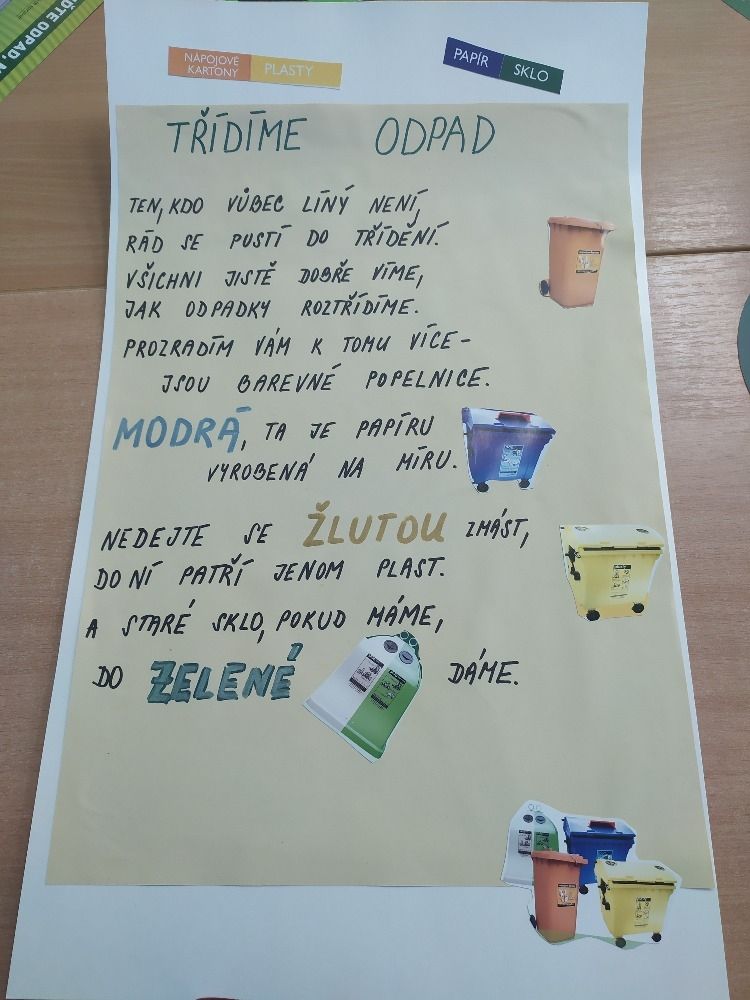 ĎTE ODPAD,
NÁPOJOVÉ KARTONY PLASTY
PAPÍR SKLO
TŘÍDÍME ODPAD
TEN, KDO VŮBEC LÍNÝ NENÍ,
RÁD SE PUSTÍ DO TŘÍDĚNÍ.
VŠICHNI JISTĚ DOBŘE VÍME,
JAK ODPADKY ROZTŘÍDÍME.
PROZRADÍM VÁM K TOMU VÍCE-
JSOU BAREVNÉ POPELNICE.
MODRÁ, TA JE PAPÍRU
VYROBENÁ NA MÍRU.
NEDEJTE SE ŽLUTOU ZMÁST,
DO NÍ PATŘÍ JENOM PLAST.
A STARÉ SKLO, POKUD MÁME,
DO ZELENÉ DÁME.